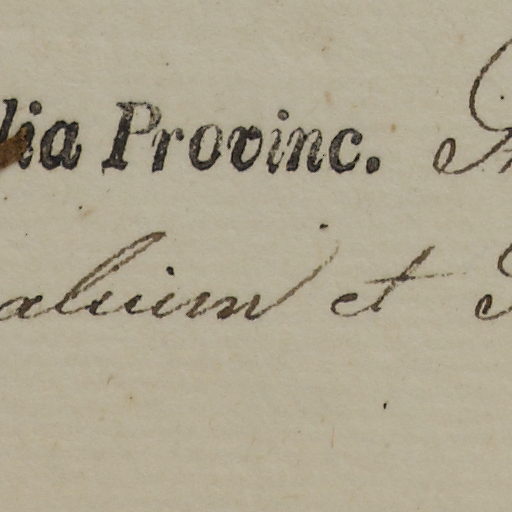 lia Provinc.
alium et